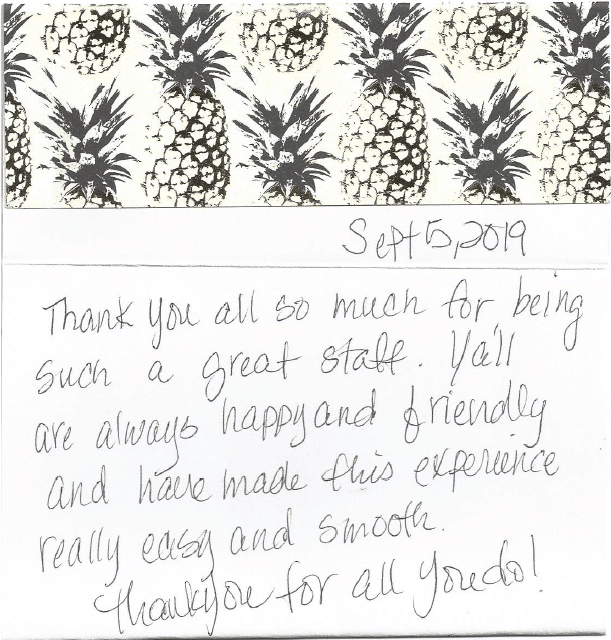 Sept 5, 2019
Thank you all so much for being
such a great staff. Ya'll
are always happy and friendly
and have made this experience
really easy and smooth.
Thank you for all you do!